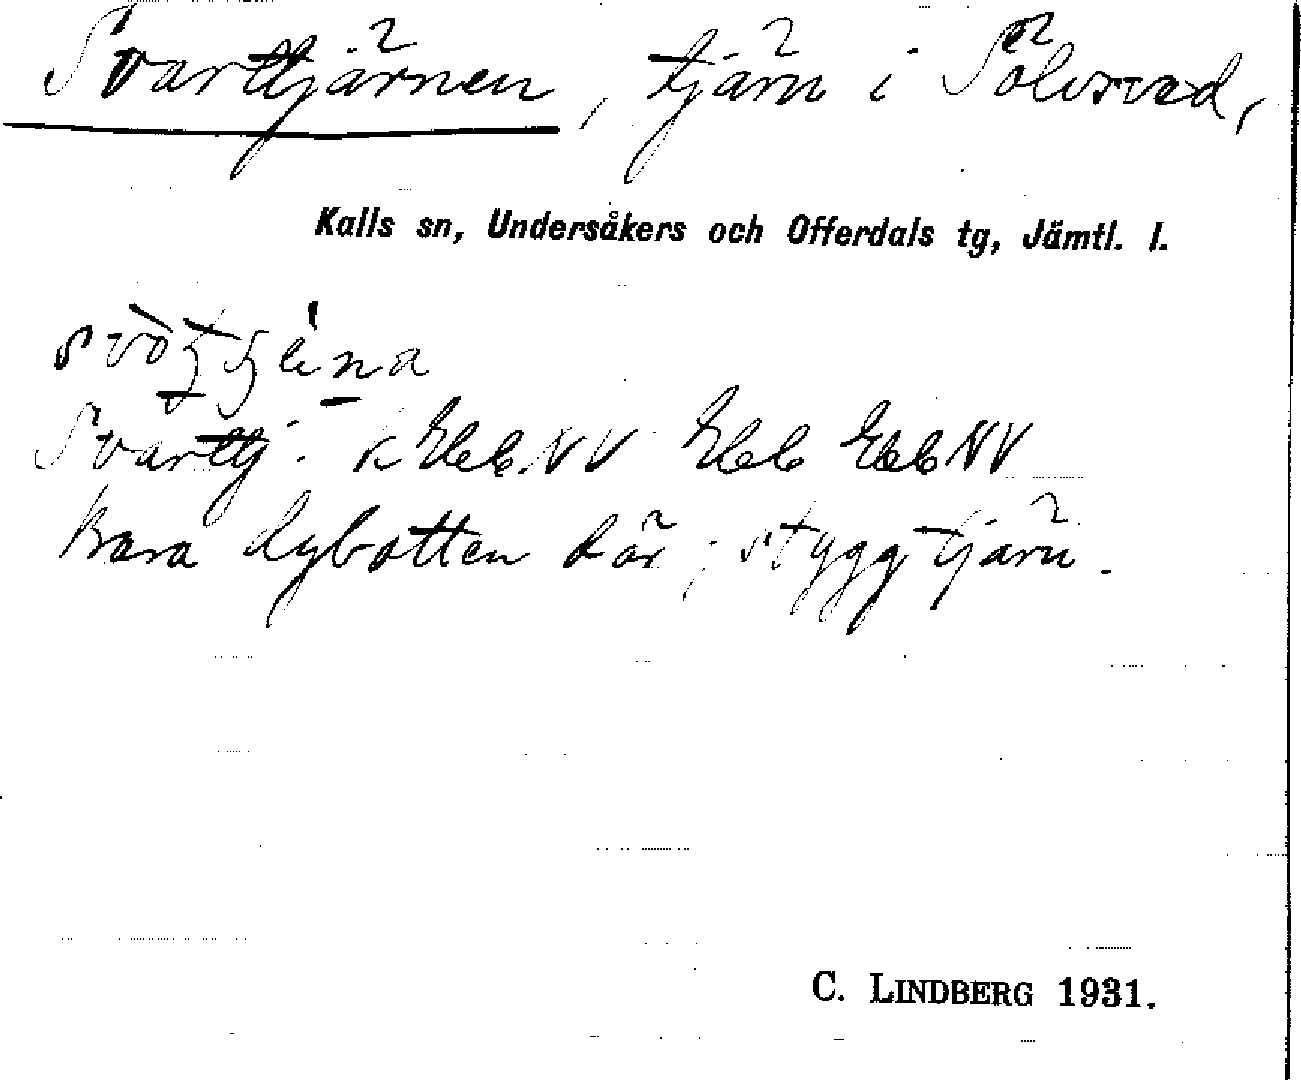 Svarttjärnen, tjärn i Sölvsved,
Kalls sn, Undersåkers och Offerdals tg, Jämtl. l.
Svarttj. k EkbNV Ekb EkbNV
bara dybotten där; stygg tjärn.
C. LINDBERG 1931.